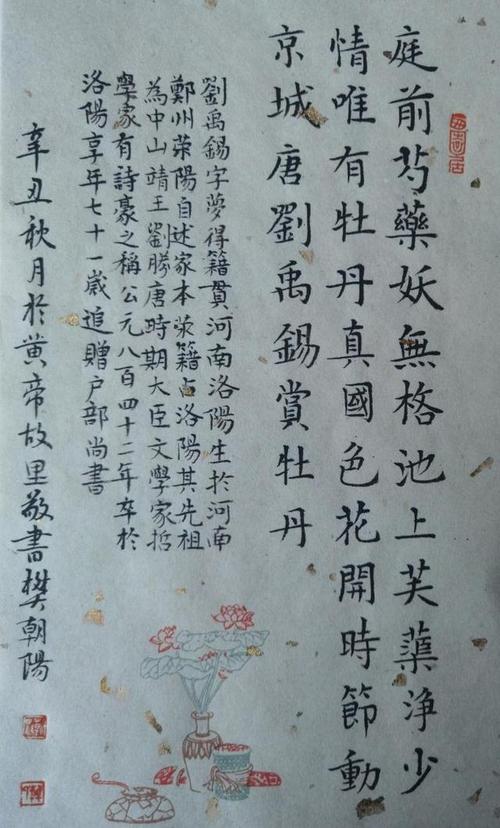 庭前芍藥妖無格池上芙蕖浄少
情唯有牡丹真國色花開時節動
京城唐劉禹錫賞牡丹
劉禹錫字夢得籍貫河南洛陽生於河南
鄭州荥陽自述家本荥籍占洛陽其先祖
為中山靖王劉勝唐時期大臣文學家哲
學家有詩豪之稱公元八百四十二年卒於
洛陽享年七十一歲追贈户部尚書
辛丑秋月於黄帝故里敬書樊朝陽